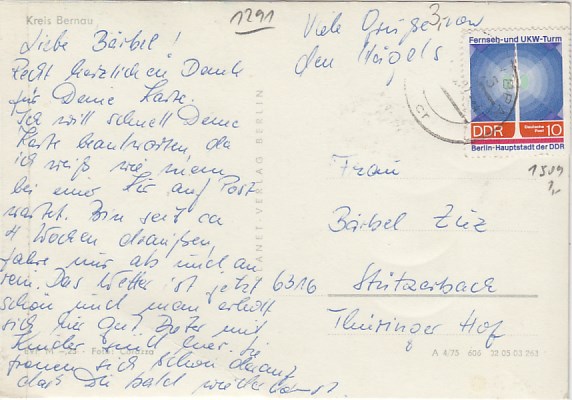 Kreis Bernau
1291
Liebe Bärbel!
Recht herzlichen Dank
für Deine Karte.
Ich will schnell Deine
Karte beantworten da
ich weiß wie man
bei einer Kur auf Post
wartet. Bin seit ca
4 Wochen draußen,
fahre nur ab und an
rein. Das Wetter ist jetzt
schön und man erholt
sich hier gut. Dieter mit
Kinder sind hier. Sie
freuen sich schon darauf,
daß Du bald wiederkommst.
Viele Grüße von
den Vögels
PLANET-VERLAG BERLIN
Fernseh- und UKW-Turm
DDR
Deutsche Post
10
Berlin-Hauptstadt der DDR
1509
Frau
Bärbel Züz
6316 Stützerbach
Thüringer Hof
A 4/75 606 32 05 03 263